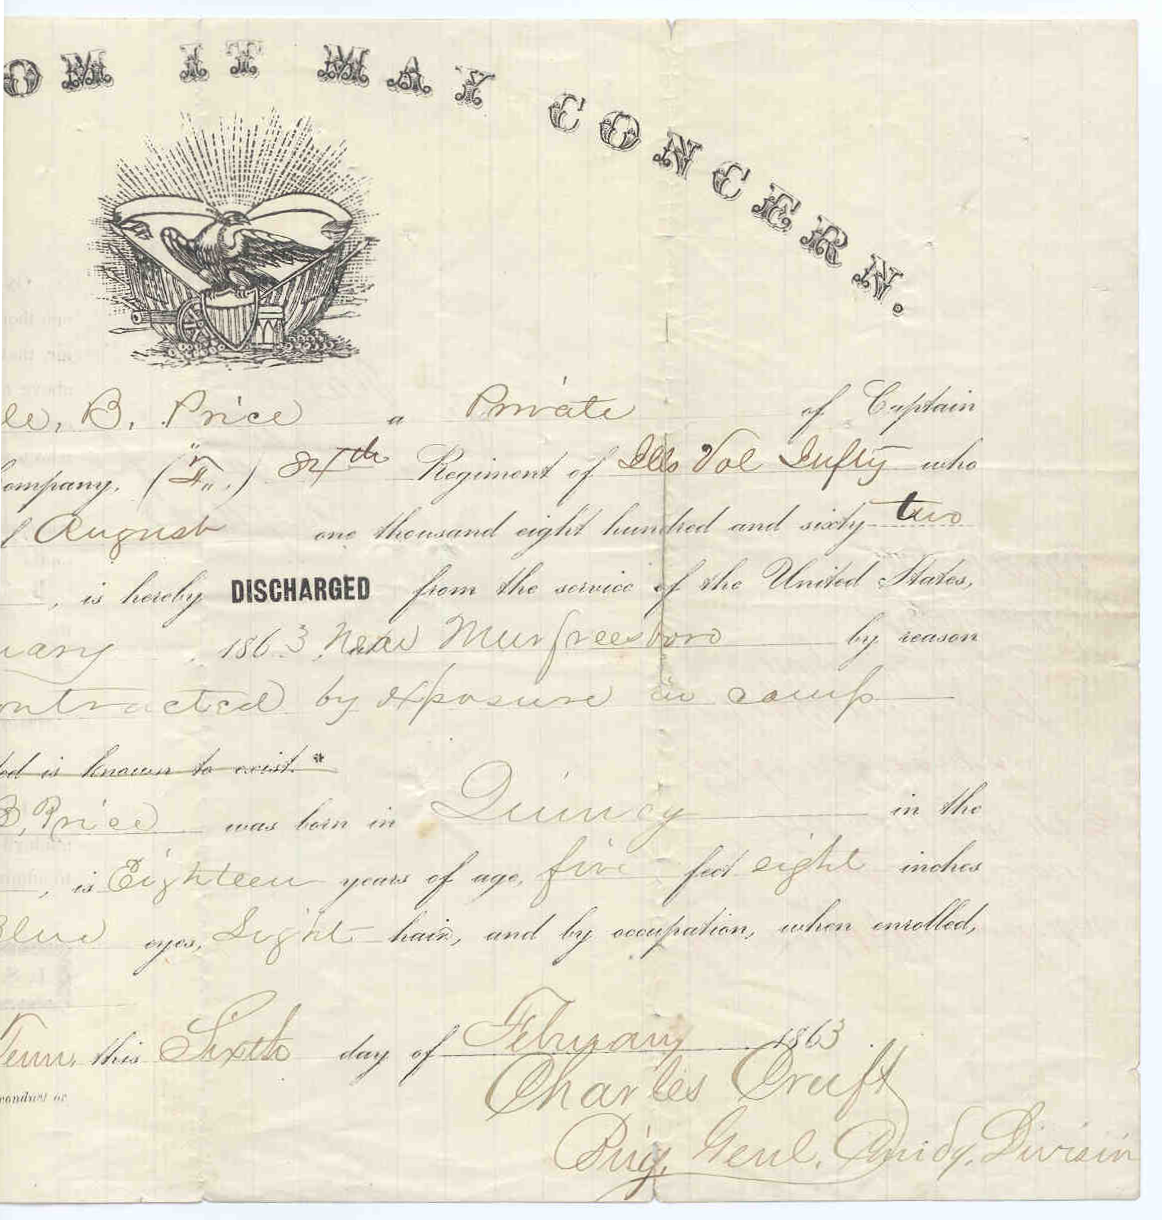 OM IT MAY CONCERN.
le, B. Price a Private of Captain
ompany, ("F",) 84th Regiment of Ills Vol Infty who
f August one thousand eight hundred and sixty two
, is hereby DISCHARGED from the service of the United States,
uary 1863, Near Murfreesboro by reason
ontracted by exposure in camp
ted is known to exist.*
B. Price was born in Quincy in the
, is Eighteen years of age, five feet eight inches
Blue eyes, Light hair, and by occupation, when enrolled,
Tenn, this Sixth day of February 1863
conduct or
Charles Cruft
Brig. Genl. Comdg. Division